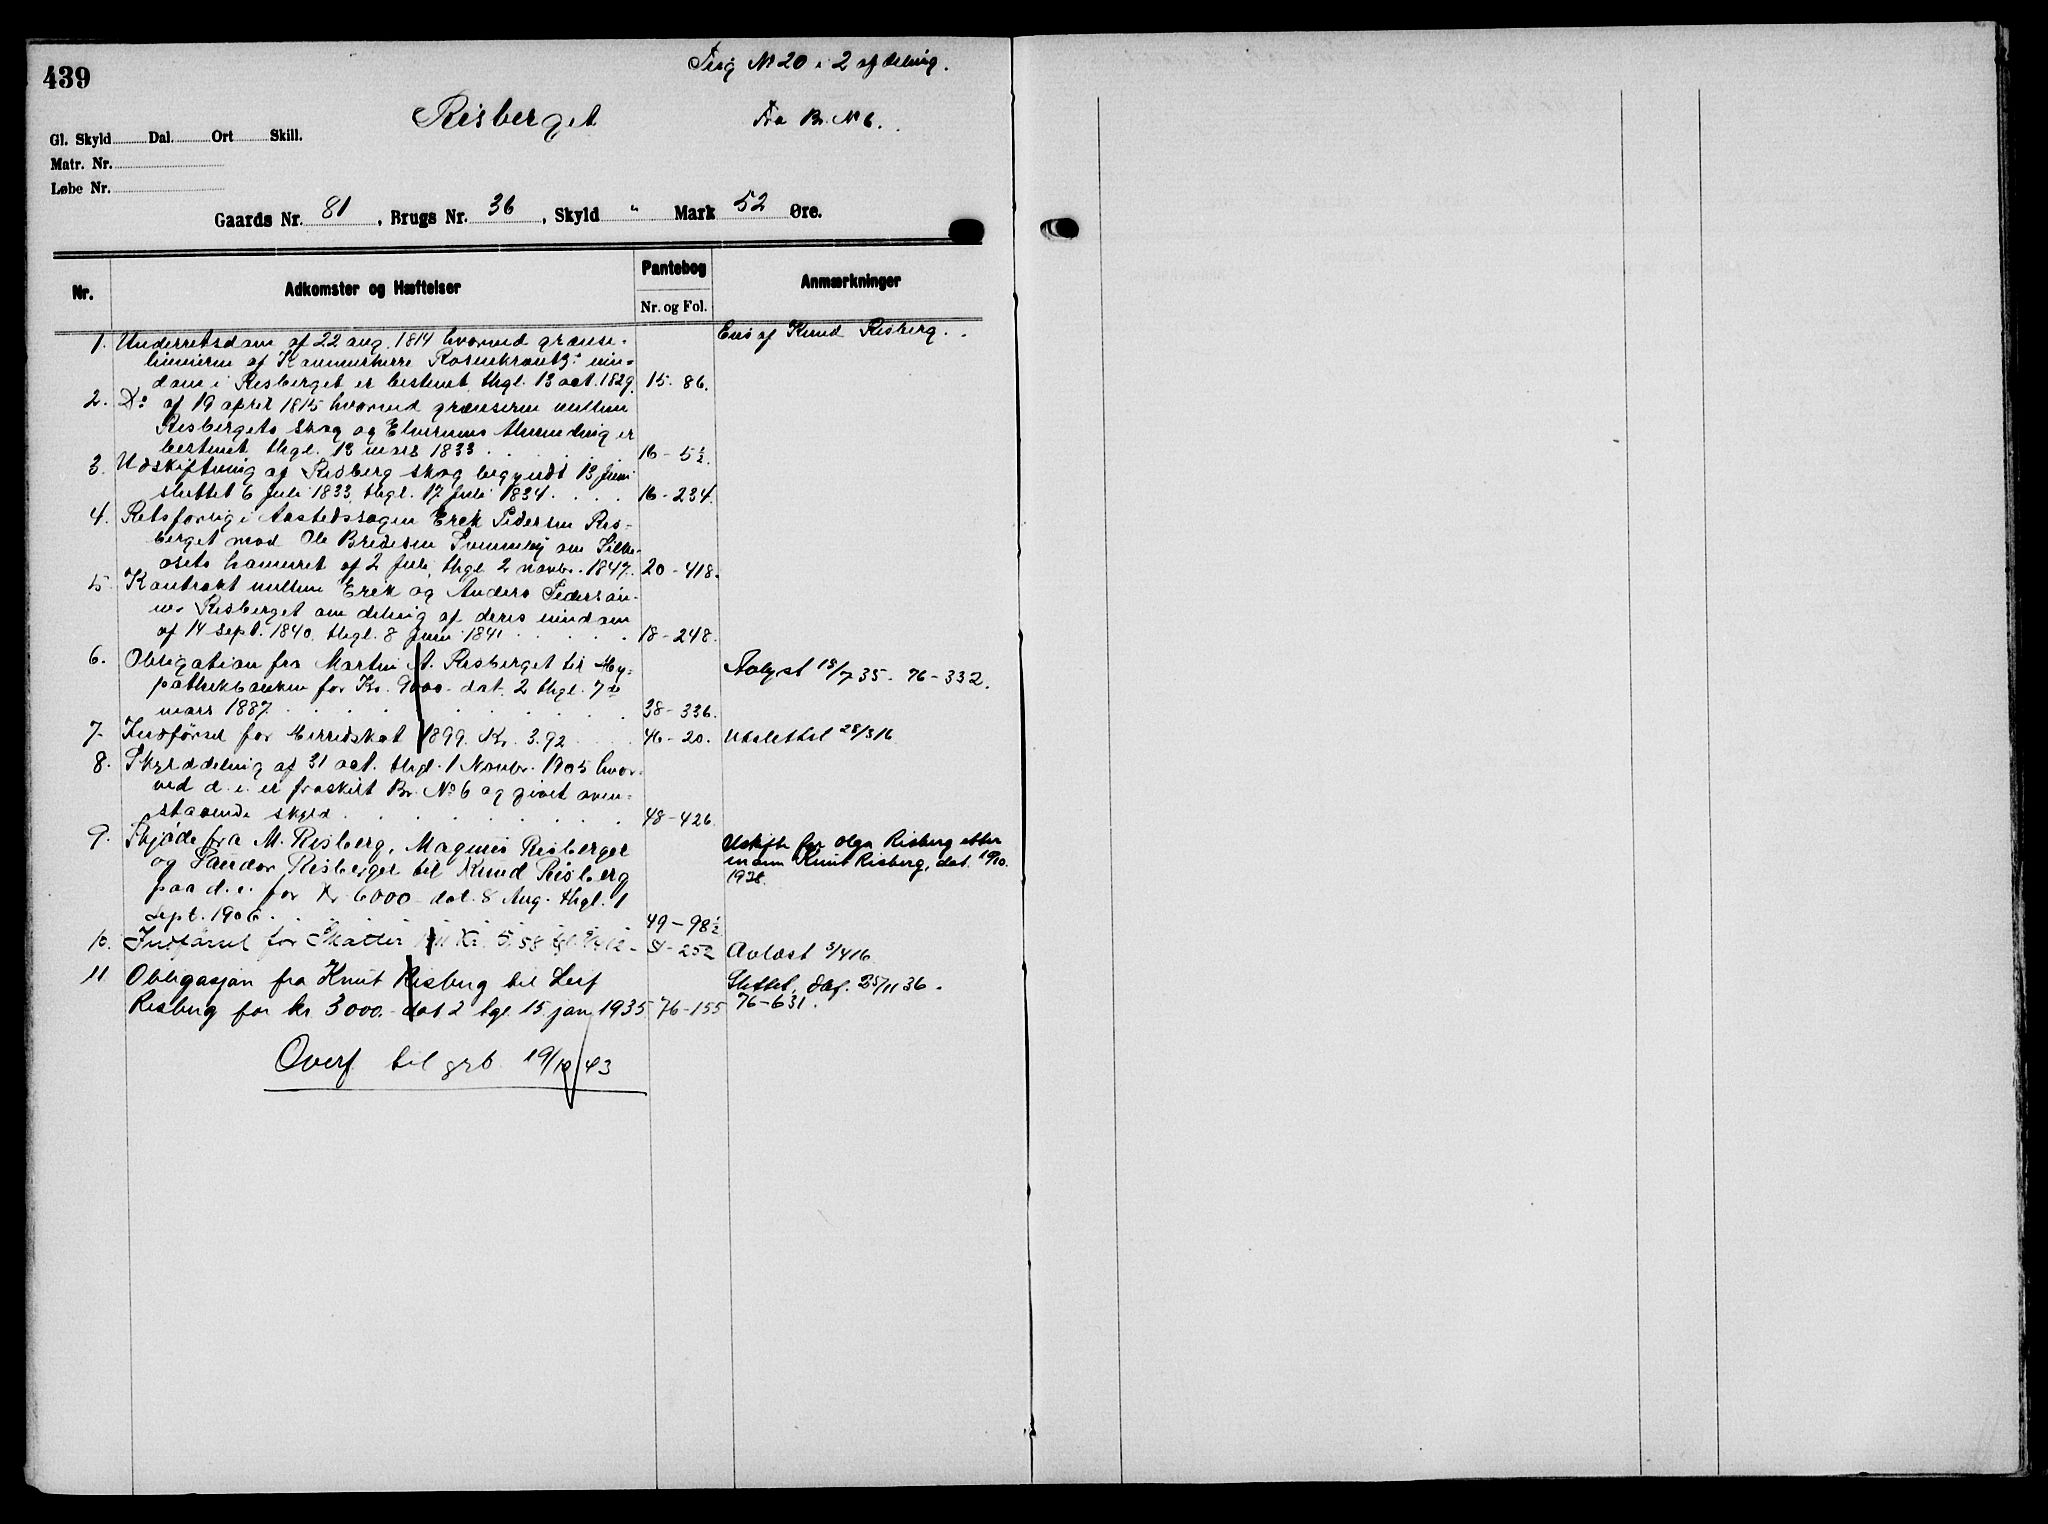 439
Tvig No 20 i 2 afdeling.
Risberget
Fra Br. No 6.
Gl. Skyld Dal. Ort Skill.
Matr. Nr.
Løbe Nr.
Gaards Nr. 81, Brugs Nr. 36, Skyld " Mark 52 Øre.
Nr. Adkomster og Hæftelser Pantebog Nr. og Fol. Anmærkninger
1. Underretsdom af 22 aug. 1814 hvorved grænse- Eies af Knud Risberg.
linierne af Kammerherre Rosenkrantz's eien-
dom i Risberget er bestemt, thgl. 13 oct. 1829. 15. 86.
2. Do af 19 april 1815 hvorved grænserne mellem
Risbergets skog og Elverums Almending er
bestemt, thgl. 13 mars 1833 16 - 5½.
3. Udskiftning af Risberg skog begyndt 13 Juni
sluttet 6 Juli 1833, thgl. 17 Juli 1834. 16 - 234.
4. Retsforlig i Aastedssagen Erek Pedersen Ris-
berget mod Ole Bredesen
hammeret af 2 Juli, thgl. 2 novbr. 1847. 20 - 418.
5. Kontrakt mellem Erek og Anders Pedersøn-
ner Risberget om deling af deres eiendom
af 14 sept. 1840, thgl. 8 Juni 1841 18 - 248.
6. Obligation fra Martin A. Risberget til Hy- Avlyst 18/7 35. 76 - 332.
pothekbanken for Kr. 9000. dat. 2 thgl. 7de
mars 1887. 38 - 336.
7. Indførsel for Herredskat 1899. Kr. 3.92 46 - 20. Udslettet 28/3 16
8. Skylddeling af 31 oct. thgl. 1 Novbr. 1905 hvor-
ved d. e. er fraskilt Br. No 6 og givet oven-
staaende skyld 48 - 426
9. Skjøde fra M. Risberg, Magnus Risberget Uskifte for Olga Risberg etter
og Risberget til Knud Risberg mann Knut Risberg, dat. 19/10.
paa d. e. for Kr 6000 dat. 8 Aug. thgl. 1 1938.
Sept. 1906. 49 - 98½
10. Indførsel for Skatter Kr. 5,58 51 - 252 Avlæst 3/4 16
11 Obligasjon fra Knut Risberg til Leif Slettet, dag. 25/11 36.
Risberg for kr 3000.- dat 2 tgl. 15. jan 1935 76 - 155 76 - 631.
Overf til grb 19/10/43